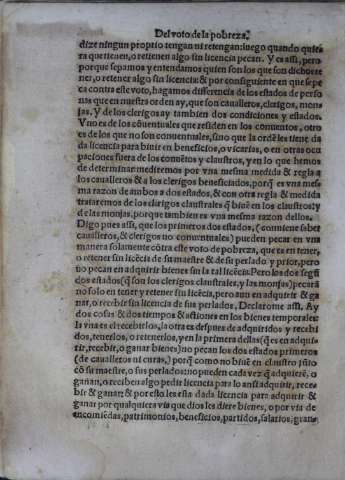 Del voto de la pobreza.
dize ningun proprio tengan ni retengan: luego quando quie
ra que tienen, o retienen algo sin licencia pecan. Y es assi, pero
porque sepamos y entendamos quien son los que son dichos te
ner, o retener algo sin licencia: & por consiguiente en que se pe
ca contra este voto, hagamos differencia de los estados de perso
nas que en nuestra orden ay, que son caualleros, clerigos, mon
jas. Y de los clerigos ay tambien dos condiciones y estados.
Vno es de los cōuentuales que residen en los conuentos, otro
es de los que no son conuentuales, sino que la ordē les tiene da
da licencia para biuir en beneficios, o vicarias, o en otras ocu
paciones fuera de los conuētos y claustros, y en lo que hemos
de determinar mediremos por vna mesma medida & regla a
los caualleros & a los clerigos beneficiados, porq̃ es vna mes
ma razon de ambos a dos estados, & con otra regla & medida
trataremos de los clerigos claustrales q̃ biuē en los claustros: y
de las monjas, porque tambien es vna mesma razon dellos.
Digo pues assi, que los primeros dos estados, (conuiene saber
caualleros, & clerigos no conuentuales) pueden pecar en vna
manera solamēte cōtra este voto de pobreza, que es en tener,
o retener sin licēcia de su maestre & de su perlado y prior, pero
no pecan en adquirir bienes sin la tal licēcia: Pero los dos segūdos
estados (q̃ son los clerigos claustrales, y las monjas) pecarā
no solo en tener y retener sin licēcia, pero aun en adquirir & ga
nar, o recebir sin licencia de sus perlados. Declarome assi. Ay
dos cosas & dos tiempos & actiones en los bienes temporales:
la vna es el recebirlos, la otra es despues de adquiridos y recebi
dos, tenerlos, o retenerlos, y en la primera dellas (q̃ es en adqui
rir, recebir, o ganar bienes) no pecan los dos estados primeros
(de caualleros ni curas,) porq̃ como no biuē en claustro jūto
cō su maestre, o sus perlados: no pueden cada vez q̃ adquierē, o
ganan, o reciben algo pedir licencia para lo assi adquirir, rece
bir & ganar: & por esto les esta dada licencia para adquirir &
ganar por qualquiera via que dios les diere bienes, o por via de
encomiēdas, patrimonios, beneficios, partidos, salarios, gran